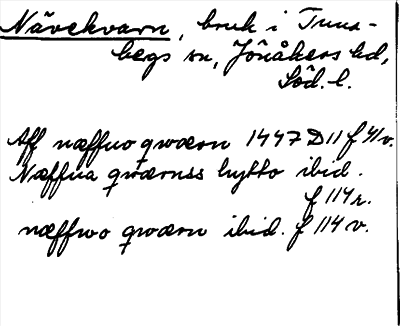 Nävekvarn, bruk i Tuna-
bergs sn, Jönåkers hd,
Söd. l.
Aff næffwo qwærn 1447 D 11 f 41 v.
Næffua qwærnss hytto ibid.
f 114 r.
næffwo qwærn ibid. f 114 v.